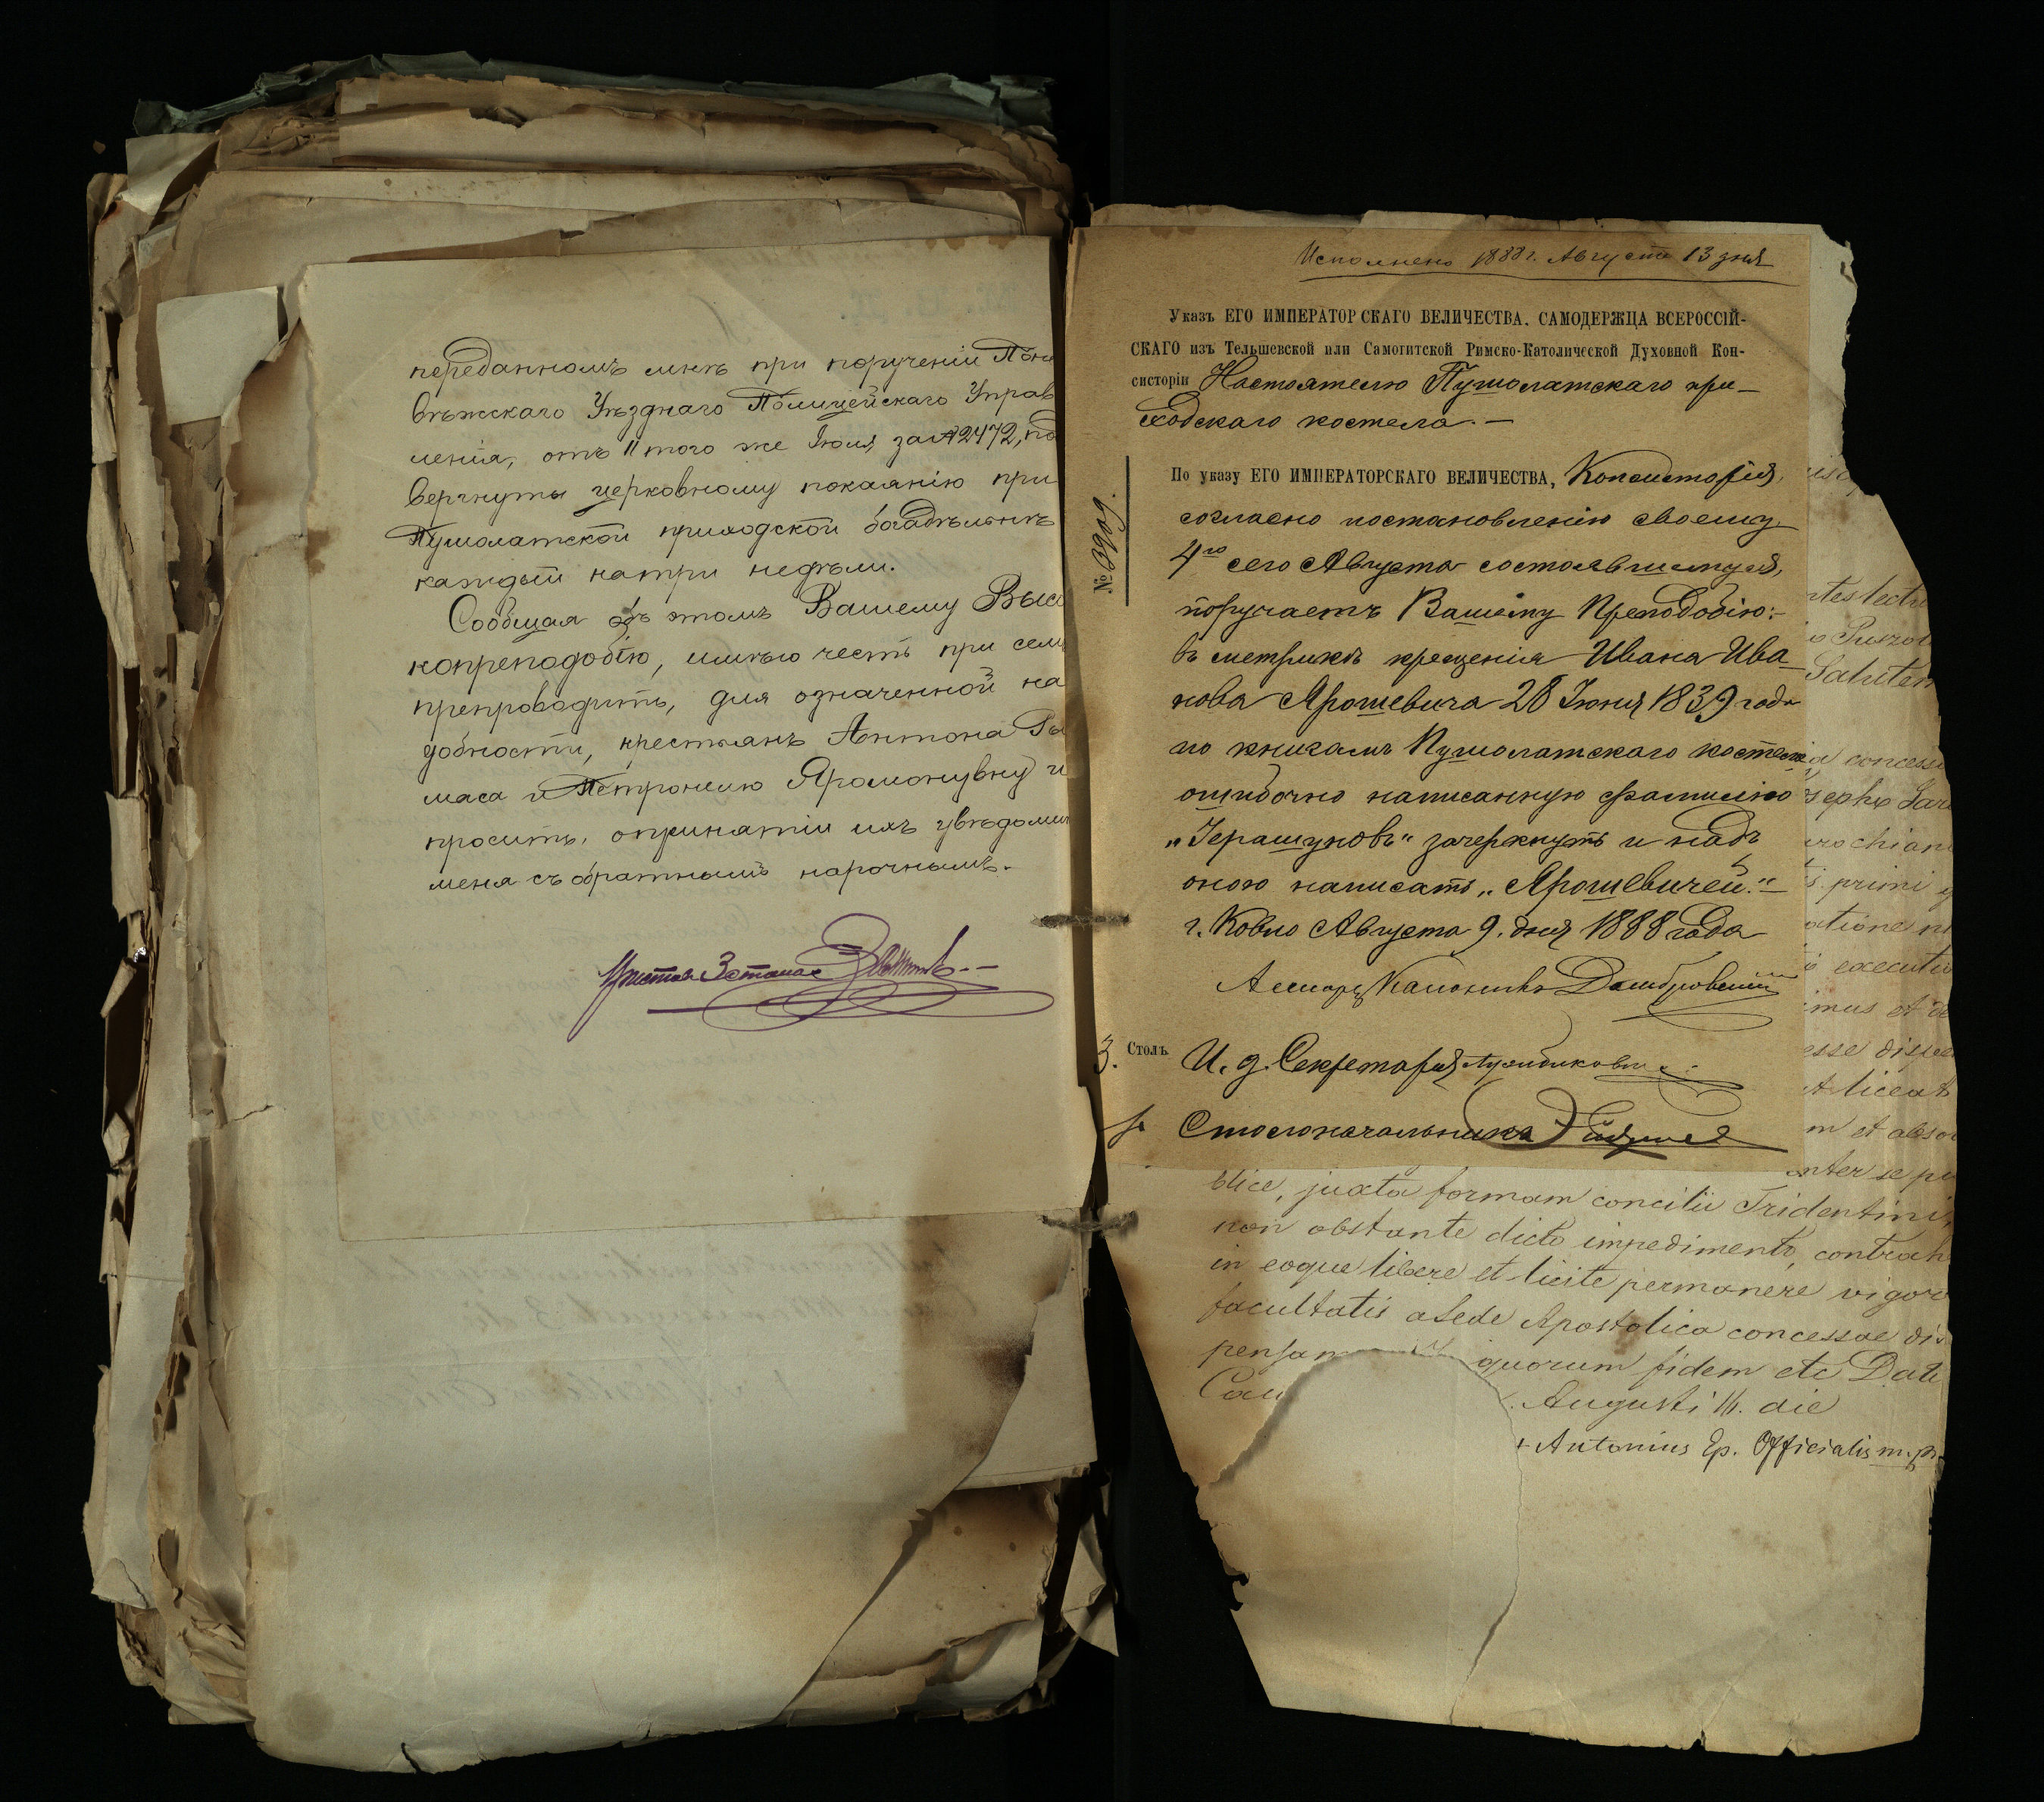 переданномъ мнѣ при порученіи Поне
вѣжскаго Уѣзднаго Полицейскаго Управ
ленія, отъ 11 того же Іюля за № 2472, под
вергнуты церковному покаянію при
Пушолатской приходской богадѣльнѣ
каждый на три недѣли.
Сообщая объ этомъ Вашему Высо
копреподобію, имѣю честь при семъ
препроводить, для означенной на
добности, крестьянъ Антона Ра
маса и Петронелю Яромонувну и
просить, о принятіи ихъ увѣдомить
меня съ обратнымъ нарочнымъ.
Приставъ 3 стана
Исполнено 1888 г. Августа 13 дня
Указъ ЕГО ИМПЕРАТОРСКАГО ВЕЛИЧЕСТВА, САМОДЕРЖЦА ВСЕРОССІЙ-
СКАГО изъ Тельшевской или Самогитской Римско-Католической Духовной Кон-
систоріи Настоятелю Пушолатскаго при-
ходскаго костела.-
№ 3909.
По указу ЕГО ИМПЕРАТОРСКАГО ВЕЛИЧЕСТВА, Консисторія,
согласно постановленію своему
4го сего Августа состоявшемуся,
поручаетъ Вашему Преподобію:-
въ метрикѣ крещенія Ивана Ива-
нова Ярошевича 28 Іюня 1839 года
по книгамъ Пушолатскаго костела
ошибочно написанную фамилію
„Герашуновъ" зачеркнуть и надъ
оною написать „Ярошевичей."
г. Ковно Августа 9. дня 1888 года
Ассесоръ Каноникъ Домбровскій
3. Столъ И. д. Секретаря
Столоначальника
blice, juxta formam concilii Tridentini,
non obstante dicto impedimento, contrah
in eoque libere et licite permanere vigore
facultatis a Sede Apostolica concessae dis
pensam quorum fidem etc Dat
Augusti 11. die
+ Antonius Ep. Officialis m.p.